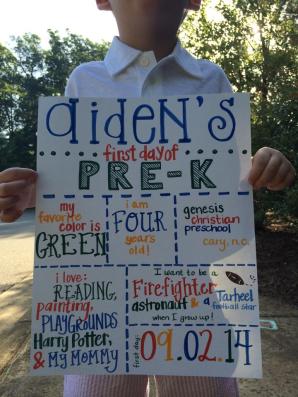 aiden's
first day of
PRE-K
my
favorite
color is
GREEN
i am
FOUR
years
old!
genesis
christian
preschool
cary, n.c.
i love:
READING,
painting,
PLAYGROUNDS
Harry Potter,
& MY MOMMY
I want to be a
Firefighter
astronaut & a
Tarheel
football star
when I grow up!
first day:
09.02.14